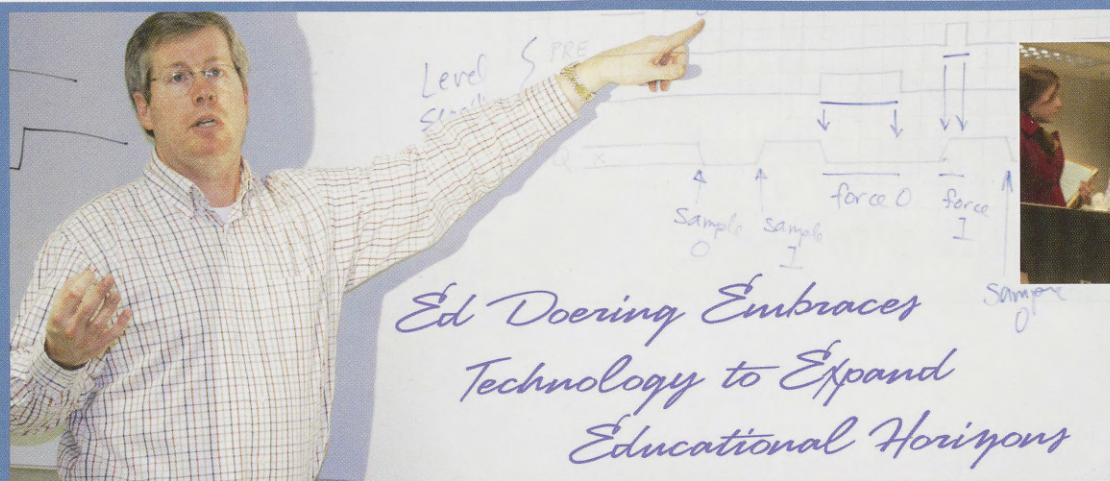 PRE
Level
Q x
force 0
force
1
sample
0
sample
1
sample
0
Ed Doering Embraces
Technology to Expand
Educational Horizons